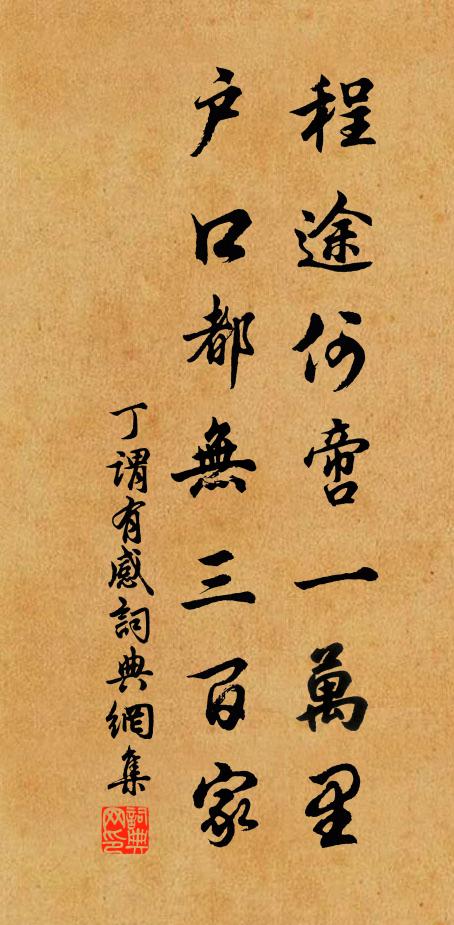 程途何啻一萬里
户口都無三百家
丁謂有感詞典網集
詞典网印